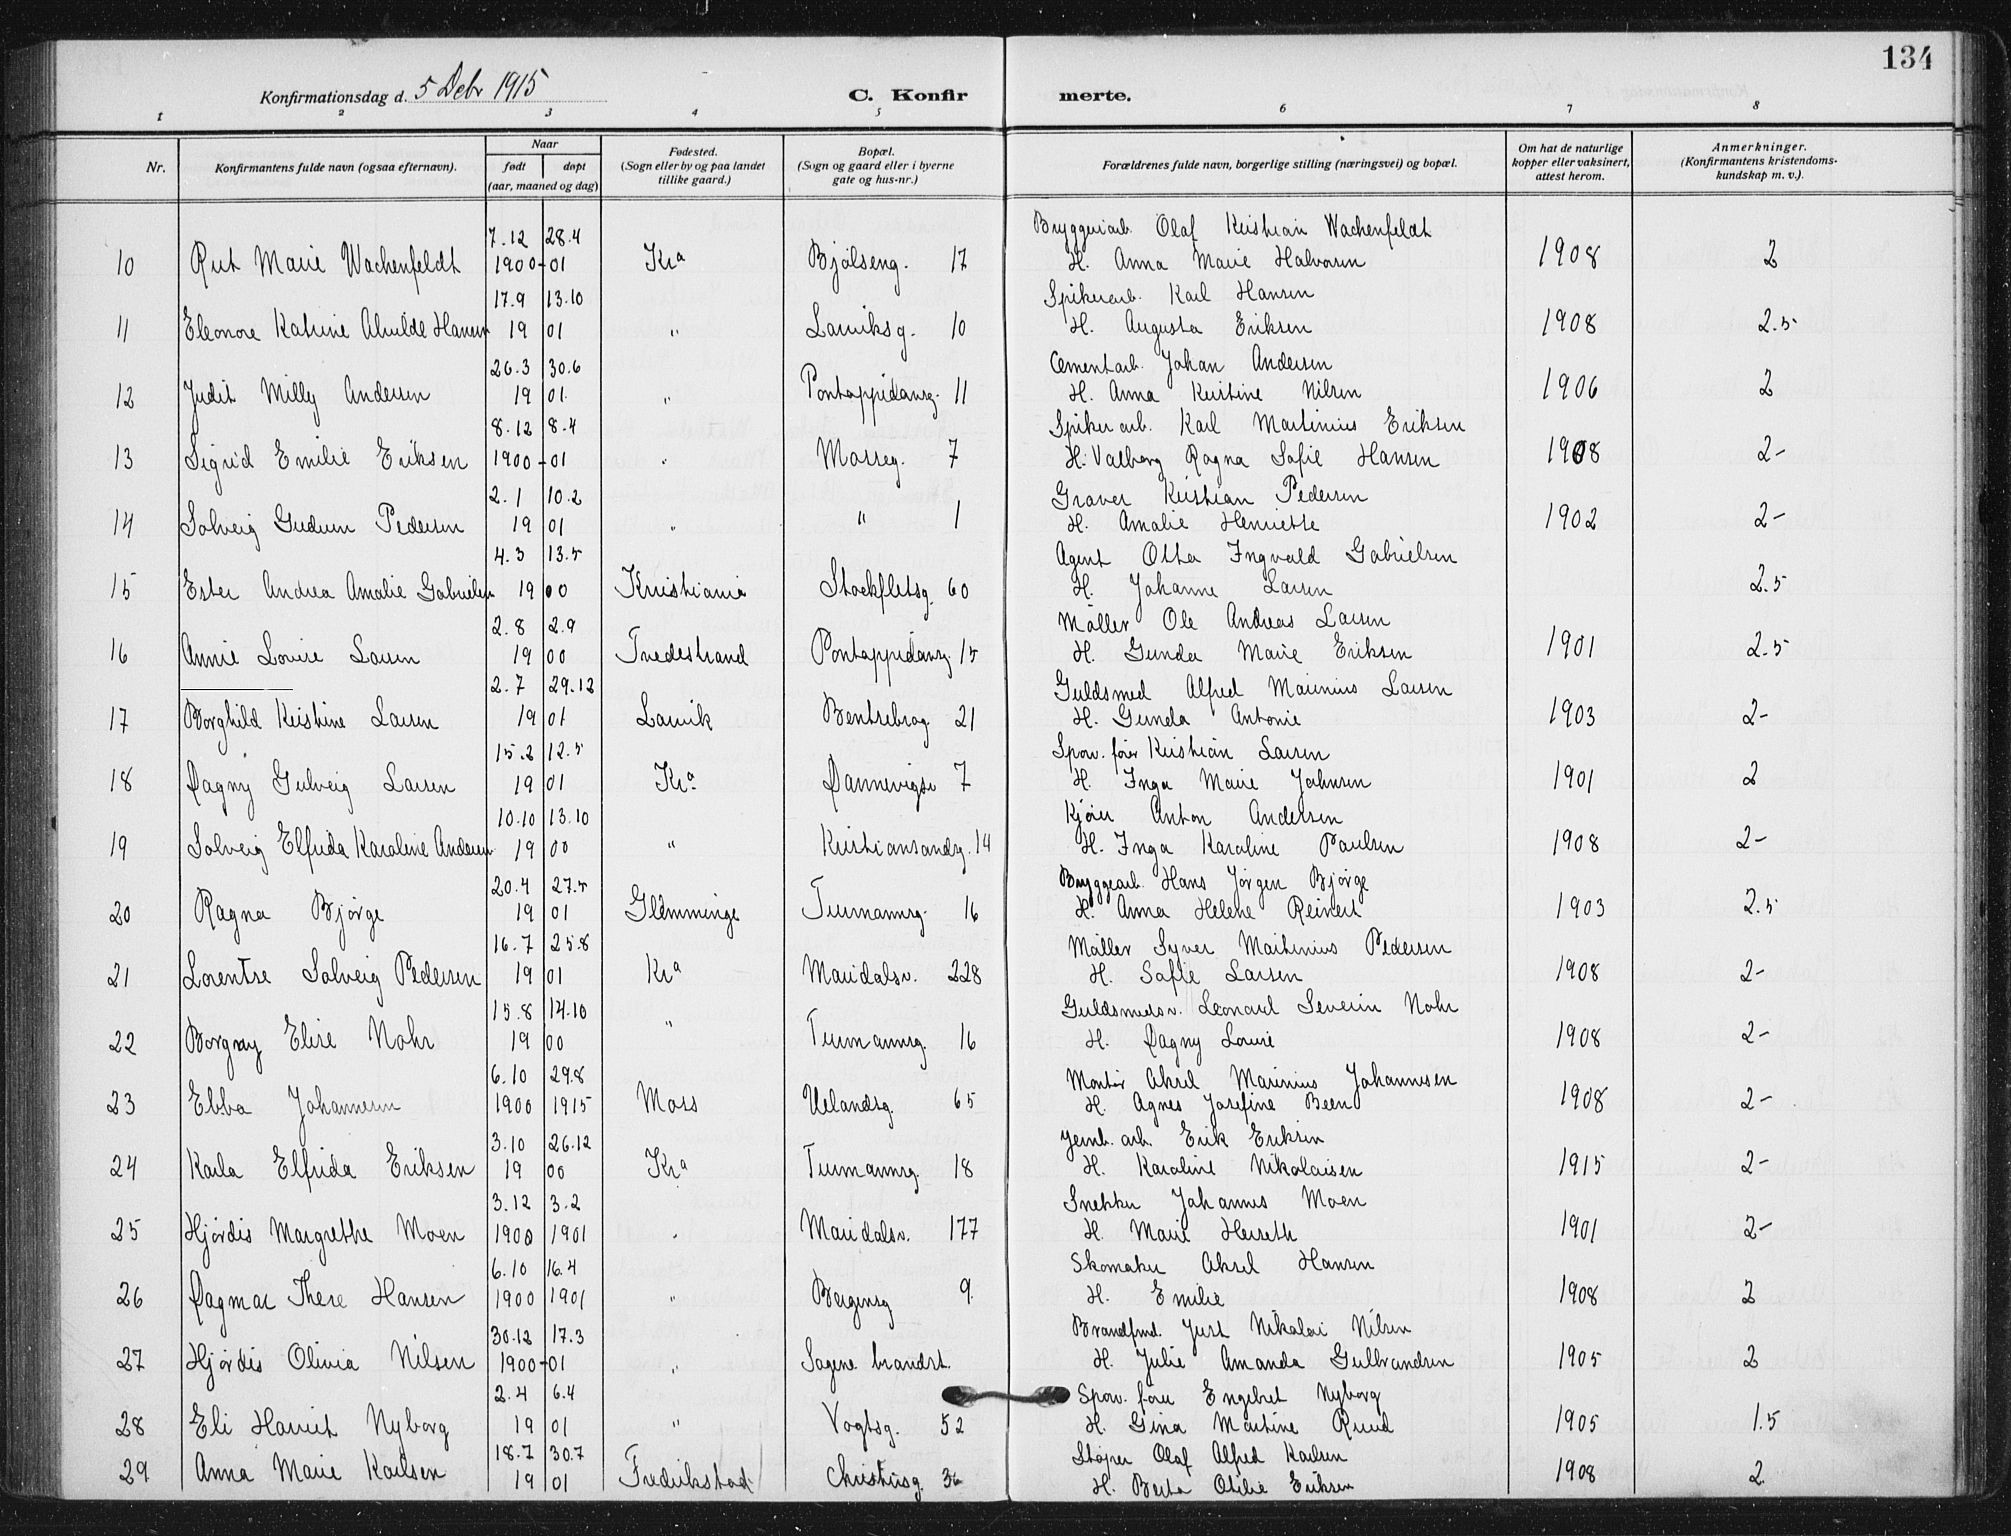 134
Konfirmationsdag d. 5 Debr 1915
C. Konfir merte.
1 2 3 4 5 6 7 8
Nr.
Konfirmantens fulde navn (ogsaa efternavn).
Naar
født døpt
(aar, maaned og dag)
Fødested.
(Sogn eller by og paa landet
tillike gaard.)
Bopæl.
(Sogn og gaard eller i byerne
gate og hus-nr.)
Forældrenes fulde navn, borgerlige stilling (næringsvei) og bopæl.
Om hat de naturlige
kopper eller vaksinert,
attest herom.
Anmerkninger.
(Konfirmantens kristendoms-
kundskap m. v.).
7.12 28.4 Bryggeriarb. Olaf Kristian Wachenfeldt
10 Rut Marie Wachenfeldt 1900-01 Kra Bjølseng. 17 H. Anna Marie Halvorsen 1908 2
17.9 13.10 Spikerarb. Karl Hansen
11 Eleonore Katrine Alvilde Hansen 19 01 " Larviksg. 10 H. Augusta Eriksen 1908 2.5
26.3 30.6 Cementarb. Johan Andersen
12 Judit Milly Andersen 19 01. " Pontoppidansg. 11 H. Anna Kristine Nilsen 1906 2
8.12 8.4 Spikerarb. Karl Martinius Eriksen
13 Sigrid Emilie Eriksen 1900-01 " Mosseg. 7 H. Valborg Ragna Sofie Hansen 1908 2-
2.1 10.2 Graver Kristian Pedersen
14 Solveig Gudrun Pedersen 19 01 " " 1 H. Amalie Henriette 1902 2-
4.3 13.5 Agent Otto Ingvald Gabrielsen
15 Ester Andrea Amalie Gabrielsen 19 00 Kristiania Stockfletsg. 60 H. Johanne Larsen 2.5
2.8 2.9 Møller Ole Andreas Larsen
16 Annie Lovise Larsen 19 00 Tvedestrand Pontoppidansg. 15 H. Gunda Marie Eriksen 1901 2.5
2.7 29.12 Guldsmed Alfred Marinius Larsen
17 Borghild Kristine Larsen 19 01 Larvik Bentsebrog. 21 H. Gunda Antonie 1903 2-
15.2 12.5 Sporv. fører Kristian Larsen
18 Dagny Gulveig Larsen 19 01 Kra. Dannevigsv 7 H. Inga Marie Johnsen 1901 2
10.10 13.10 Kjører Anton Andersen
19 Solveig Elfrida Karoline Andersen 19 00 " Kristiansandsg. 14 H. Inga Karoline Paulsen 1908 2-
20.4 27.5 Bryggearb. Hans Jørgen Bjørge
20 Ragna Bjørge 19 01 Glemminge Tuemannsg. 16 H. Anna Helene Reinert 1903 2.5
16.7 25.8 Møller Syver Martinius Pedersen
21 Lorentse Solveig Pedersen 19 01 Kra Maridalsv. 228 H. Sofie Larsen 1908 2-
15.8 14.10 Guldsmedsv. Leonard Severin Nohr
22 Borgny Elise Nohr 19 00 " Tuemannsg. 16 H. Dagny Lovise 1908 2-
6.10 29.8 Montør Aksel Marinius Johannesen
23 Ebba Johannesen 1900 1915 Moss Uelandsg. 65 H. Agnes Josefine Been 1908 2-
3.10 26.12 Jernb. arb. Erik Eriksen
24 Karla Elfrida Eriksen 19 00 Kra Tuemannsg. 18 H. Karoline Nikolaisen 1915 2-
3.12 3.2 Snekker Johannes Moen
25 Hjørdis Margrethe Moen 1900 1901 " Maridalsv. 177 H. Marie Herseth 1901 2-
6.10 16.4 Skomaker Aksel Hansen
26 Dagmar There Hansen 1900 1901 " Bergensg 9 H. Emilie 1908 2
30.12 17.3 Brandfmd. Just Nikolai Nilsen
27 Hjørdis Olivia Nilsen 1900-01 " Sagene brandst. H. Julie Amanda Gulbrandsen 1905 2
2.4 6.4 Sporv. fører Engebret Nyborg
28 Eli Harriet Nyborg 19 01 " Vogtsg. 52 H. Gina Martine Ruud 1905 1.5
18.7 30.7 Støper Olaf Alfred Karlsen
29 Anna Marie Karlsen 19 01 Fredrikstad Christiesg. 36 H. Berta Otilie Eriksen 1908 2